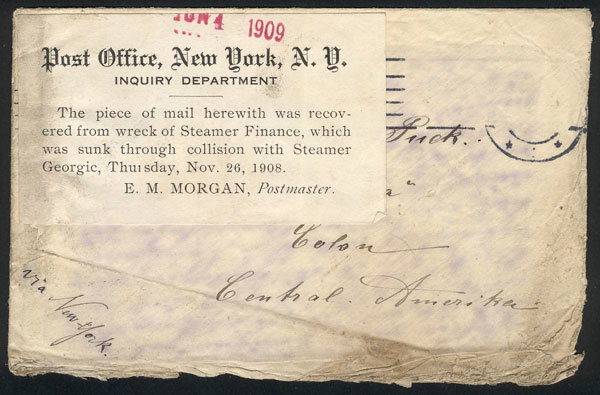 JUN 4 1909
Post Office, New York, N. Y.
INQUIRY DEPARTMENT
The piece of mail herewith was recov-
ered from wreck of Steamer Finance, which
was sunk through collision with Steamer
Georgic, Thursday, Nov. 26, 1908.
E. M. MORGAN, Postmaster.
Puck.
a"
Colon
Central. Amerika
via New-York.